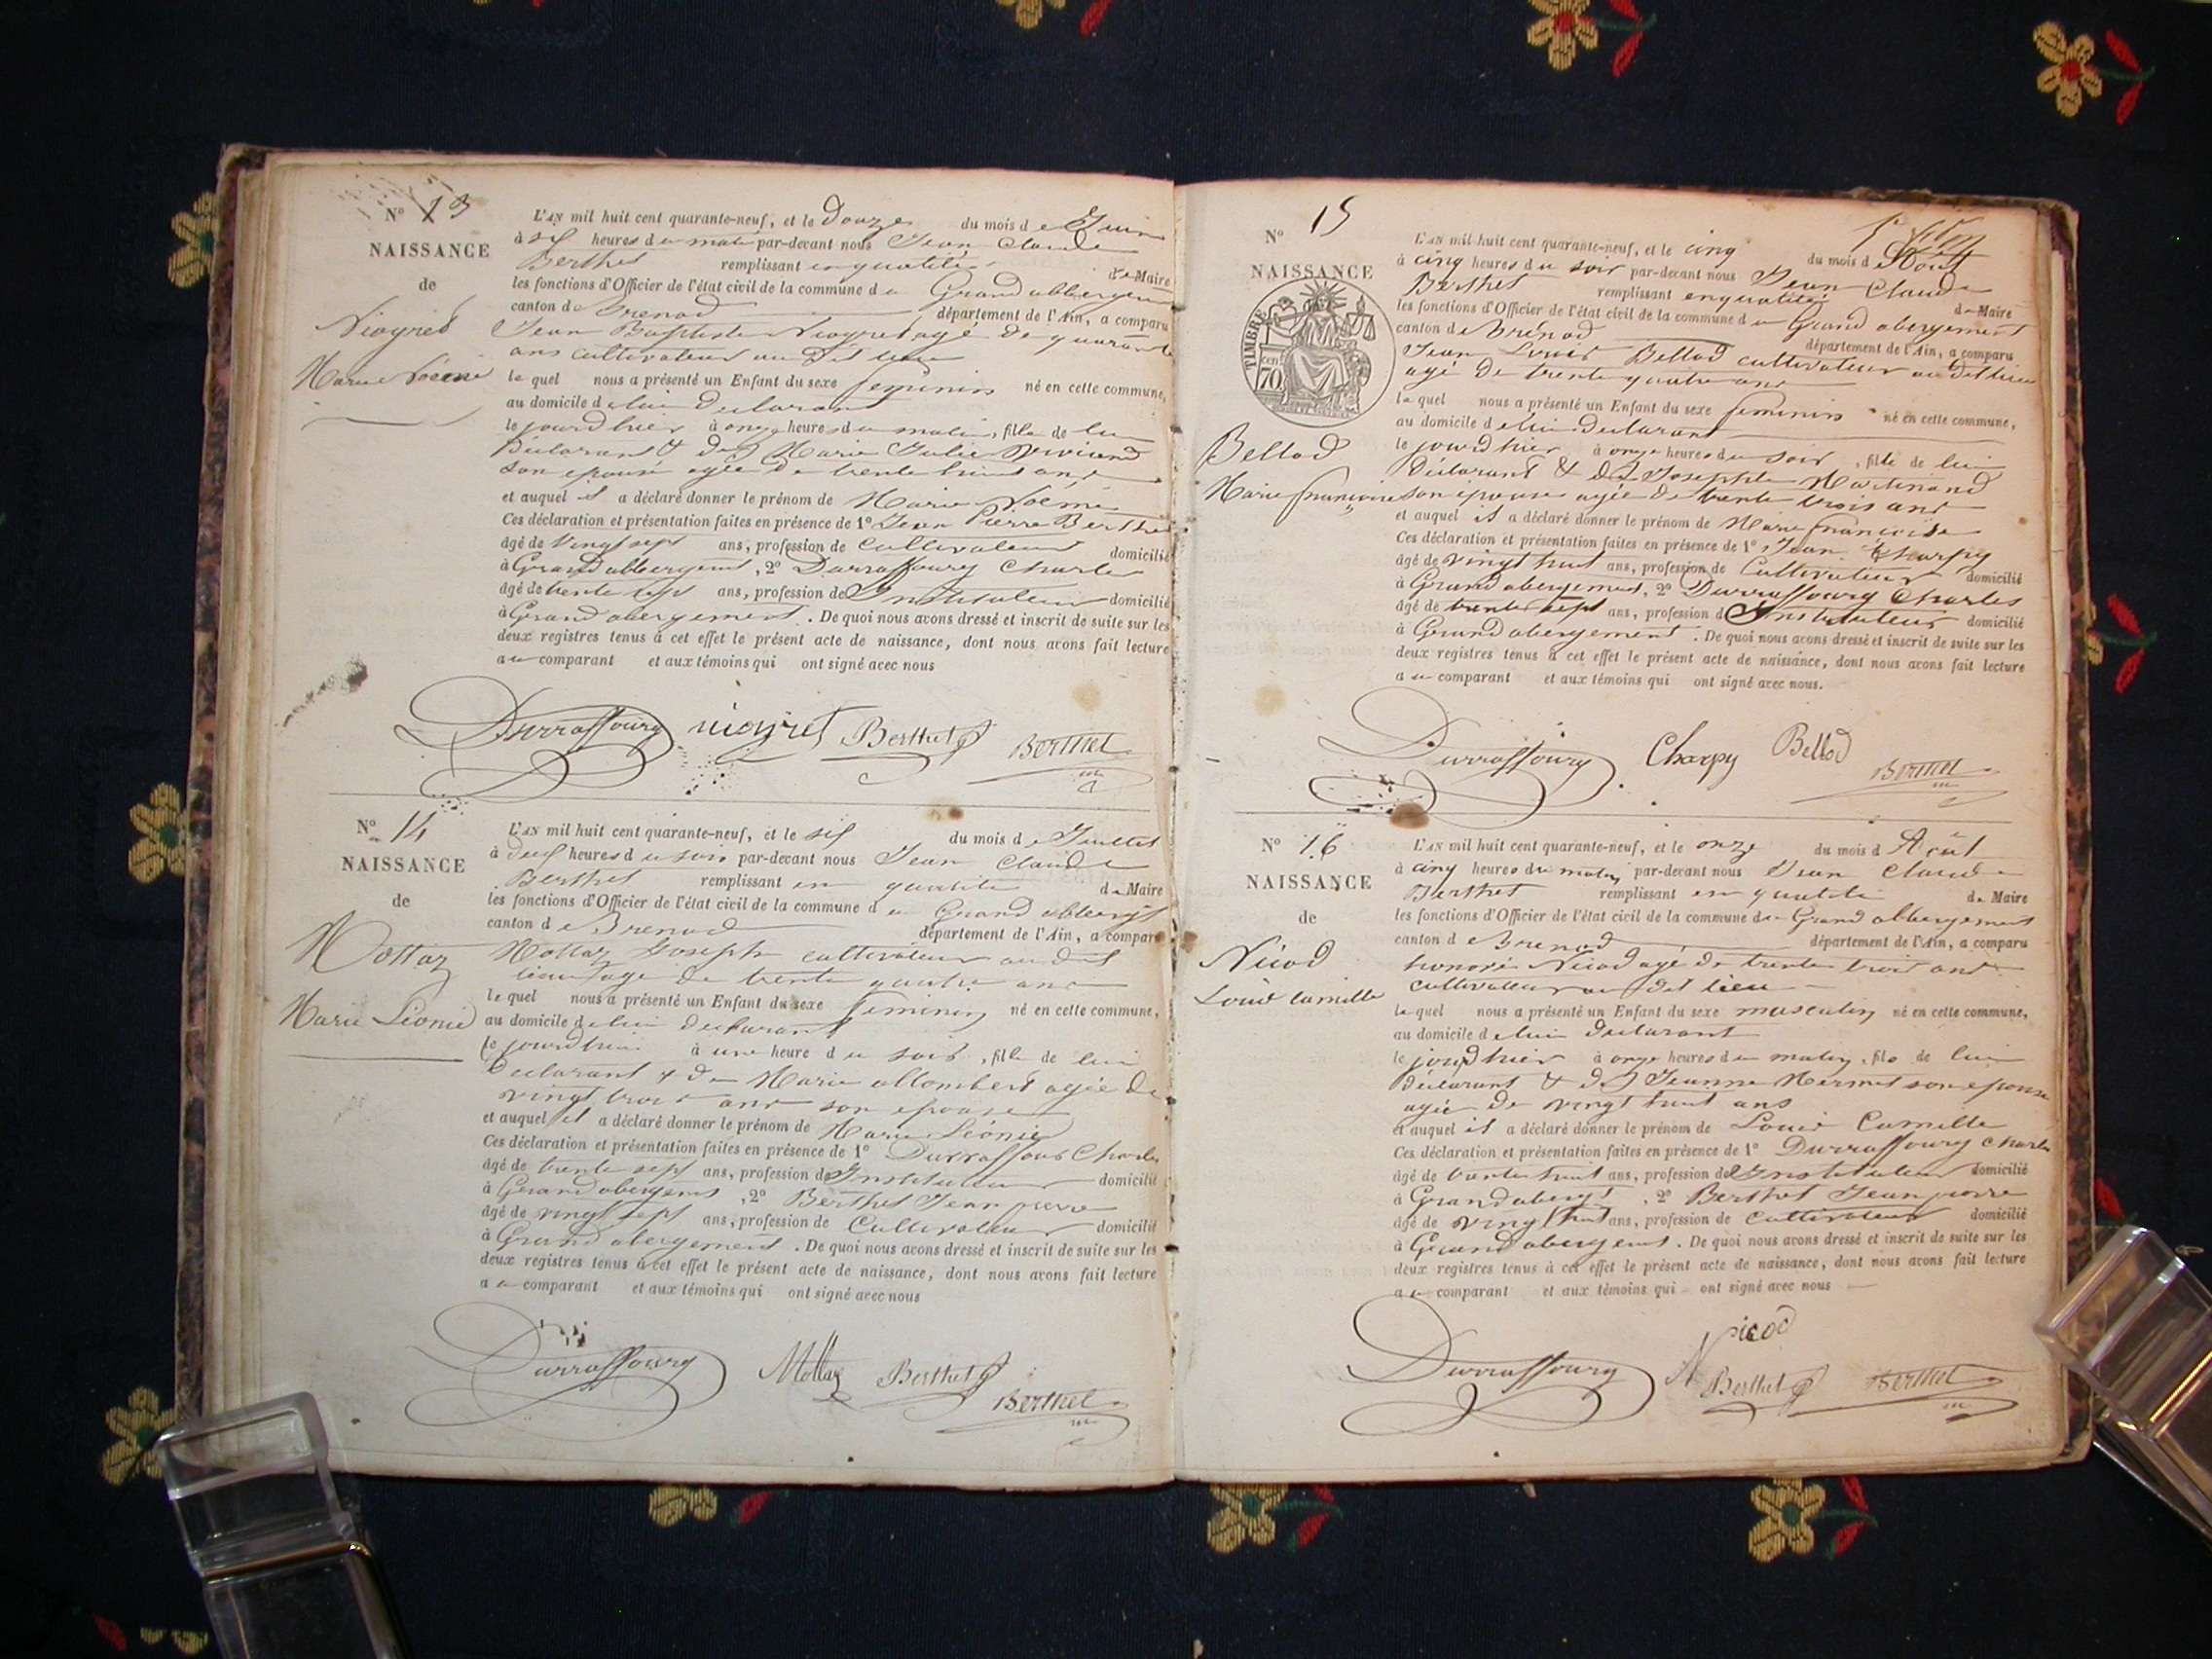 N° 13
NAISSANCE
de
Niogret
Marie Noémie
L'AN mil huit cent quarante-neuf, et le Douze du mois de Juin
à six heures du matin par-devant nous Jean Claude
Berthet remplissant en qualité de Maire
les fonctions d'Officier de l'état civil de la commune du Grand abbergem
canton de Brenod département de l'Ain, a comparu
Jean Baptiste Niogret agé de quarante
ans cultivateur au dit lieu
lequel nous a présenté un Enfant du sexe feminin né en cette commune,
au domicile de lui declarant
le jourd'hier à onze heures du matin, fille de lui
Déclarant & de Marie Julie
son epouse agée de trente huit ans
et auquel il a déclaré donner le prénom de Marie Noémie
Ces déclaration et présentation faites en présence de 1° Jean Pierre Berthet
âgé de vingt sept ans, profession de Cultivateur domicilié
à Grand abbergement, 2° Durraffourg Charles
âgé de trente sept ans, profession de Instituteur domicilié
à Grand abergement. De quoi nous avons dressé et inscrit de suite sur les
deux registres tenus à cet effet le présent acte de naissance, dont nous avons fait lecture
au comparant et aux témoins qui ont signé avec nous
Durraffourg niogret Berthet Berthet
N° 14
NAISSANCE
de
Mottaz
Marie Léonie
L'AN mil huit cent quarante-neuf, et le six du mois de Juillet
à deux heures du soir par-devant nous Jean Claude
Berthet remplissant en qualité de Maire
les fonctions d'Officier de l'état civil de la commune du Grand abberg
canton de Brenod département de l'Ain, a comparu
Mottaz Joseph cultivateur au dit
lieu agé de trente quatre ans
lequel nous a présenté un Enfant du sexe feminin né en cette commune,
au domicile de lui declarant
le jourd'hui à une heure du soir, fille de lui
Declarant & de Marie allombert agée de
vingt trois ans son epouse
et auquel il a déclaré donner le prénom de Marie Léonie
Ces déclaration et présentation faites en présence de 1° Durraffour Charles
âgé de trente sept ans, profession de Instituteur domicilié
à Grand abergemt, 2° Berthet Jean pierre
âgé de vingt sept ans, profession de Cultivateur domicilié
à Grand abergement. De quoi nous avons dressé et inscrit de suite sur les
deux registres tenus à cet effet le présent acte de naissance, dont nous avons fait lecture
au comparant et aux témoins qui ont signé avec nous
Durraffourg Mottaz Berthet Berthet
N° 15
NAISSANCE
TIMBRE
70
Bellod
Marie françoise
L'AN mil huit cent quarante-neuf, et le cinq du mois d Août
à cinq heures du soir par-devant nous Jean Claude
Berthet remplissant en qualité de Maire
les fonctions d'Officier de l'état civil de la commune du Grand abergement
canton de Brénod département de l'Ain, a comparu
Jean Louis Bellod cultivateur au dit lieu
agé de trente quatre ans
lequel nous a présenté un Enfant du sexe feminin né en cette commune,
au domicile de lui declarant
le jourd'hier à onze heures du soir, fille de lui
Déclarant & de Josephte Martinand
son epouse agée de trente trois ans
et auquel il a déclaré donner le prénom de Marie françoise
Ces déclaration et présentation faites en présence de 1° Jean Charpy
âgé de vingt huit ans, profession de Cultivateur domicilié
à Grand abergement, 2° Durraffourg Charles
âgé de trente sept ans, profession d Instituteur domicilié
à Grand abergement. De quoi nous avons dressé et inscrit de suite sur les
deux registres tenus à cet effet le présent acte de naissance, dont nous avons fait lecture
au comparant et aux témoins qui ont signé avec nous.
Durraffourg Charpy Bellod Berthet
N° 16
NAISSANCE
de
Nicod
Louis Camille
L'AN mil huit cent quarante-neuf, et le onze du mois d Août
à cinq heures du matin par-devant nous Jean Claude
Berthet remplissant en qualité de Maire
les fonctions d'Officier de l'état civil de la commune du Grand abbergement
canton de Brenod département de l'Ain, a comparu
honoré Nicod agé de trente trois ans
cultivateur au dit lieu
lequel nous a présenté un Enfant du sexe masculin né en cette commune,
au domicile de lui declarant
le jourd'hier à onze heures du matin, fils de lui
déclarant & de Jeanne Mermet son epouse
agée de vingt huit ans
et auquel il a déclaré donner le prénom de Louis Camille
Ces déclaration et présentation faites en présence de 1° Durraffourg Charles
âgé de trente huit ans, profession de Instituteur domicilié
à Grand abergt, 2° Berthet Jean pierre
âgé de vingt huit ans, profession de cultivateur domicilié
à Grand abergemt. De quoi nous avons dressé et inscrit de suite sur les
deux registres tenus à cet effet le présent acte de naissance, dont nous avons fait lecture
au comparant et aux témoins qui ont signé avec nous
Durraffourg Nicod Berthet Berthet